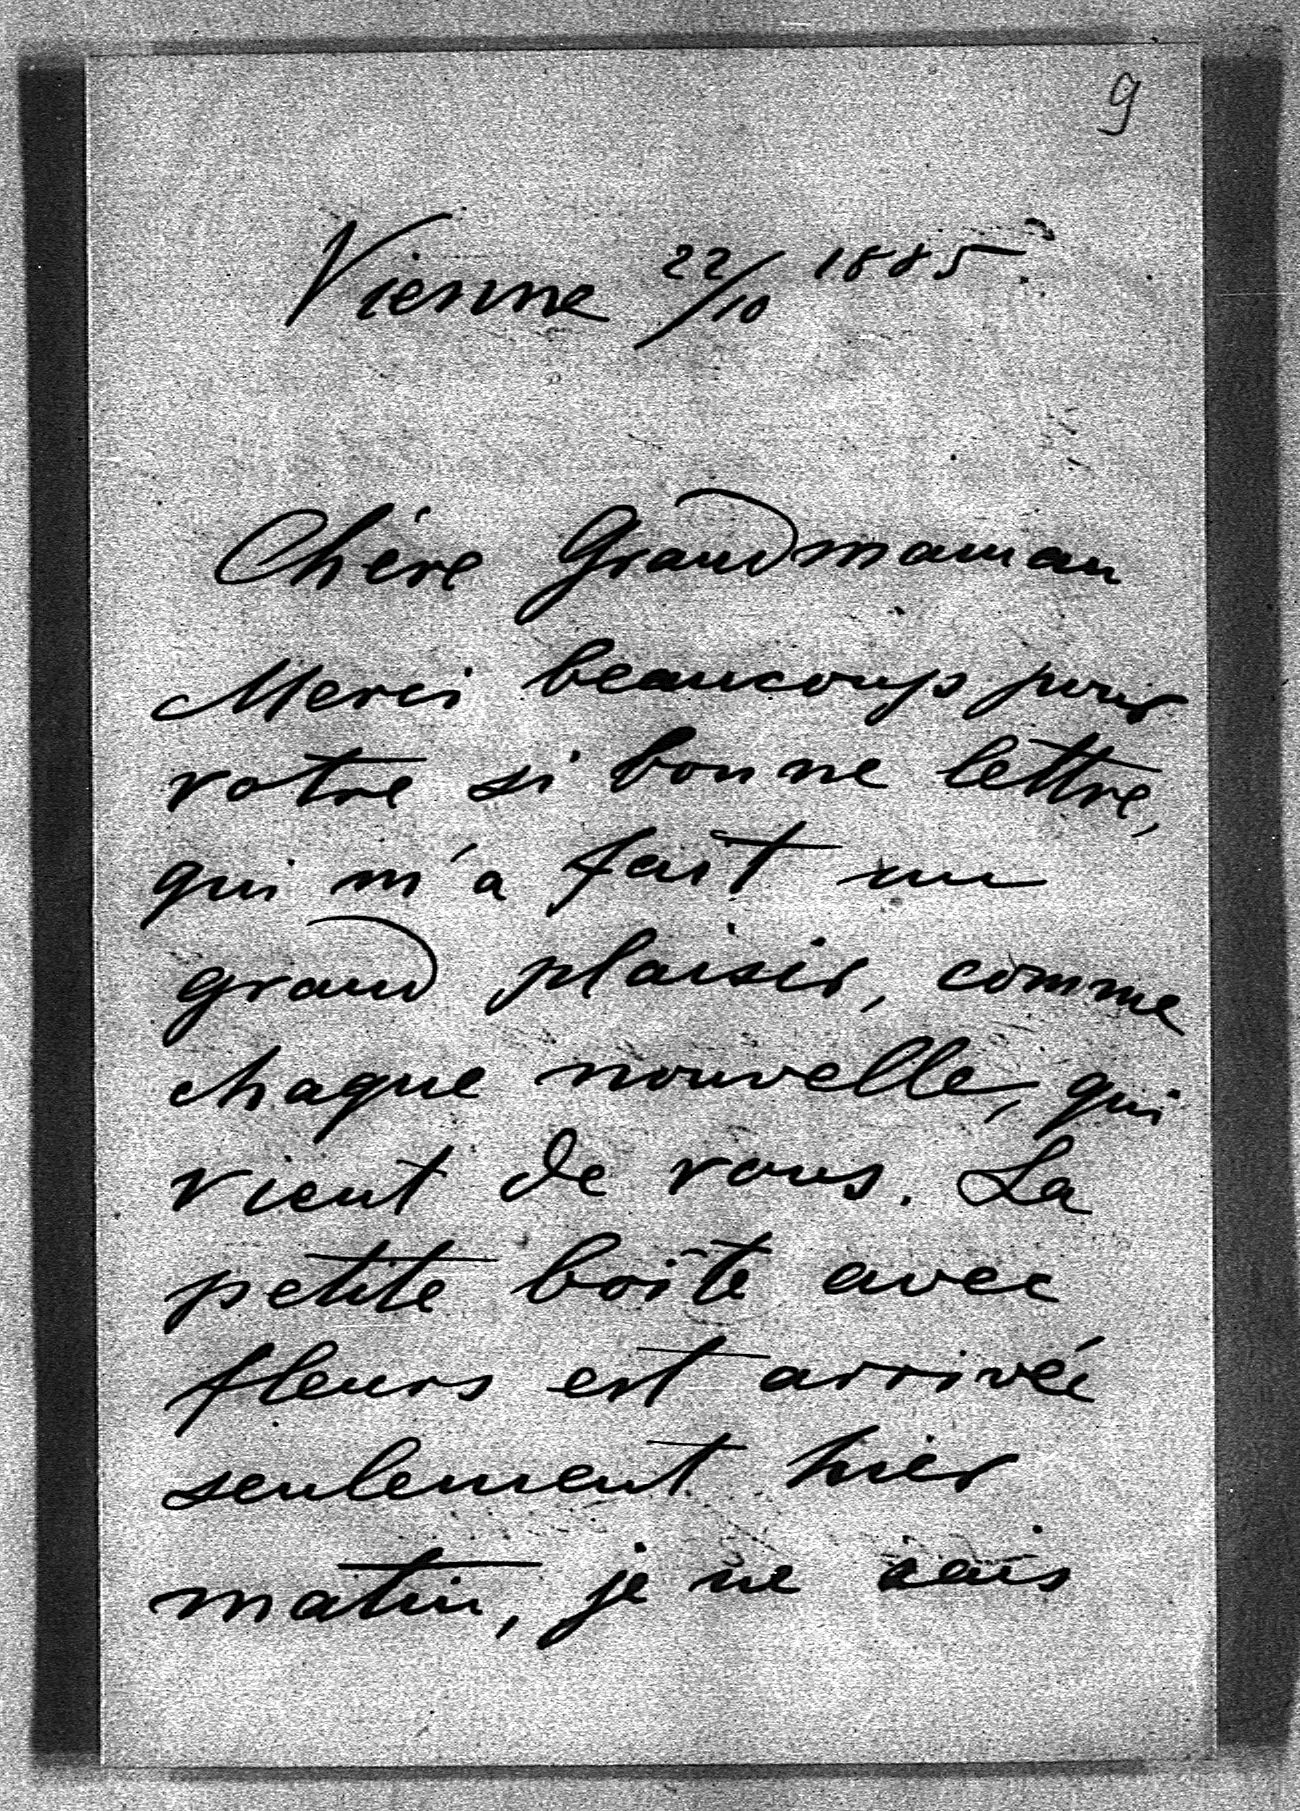 9
Vienne 22/10 1885
Chère Grandmaman
Merci beaucoup pour
votre si bonne lettre,
qui m'a fait un
grand plaisir, comme
chaque nouvelle, qui
vient de vous. La
petite boîte avec
fleurs est arrivée
seulement hier
matin, je ne sais